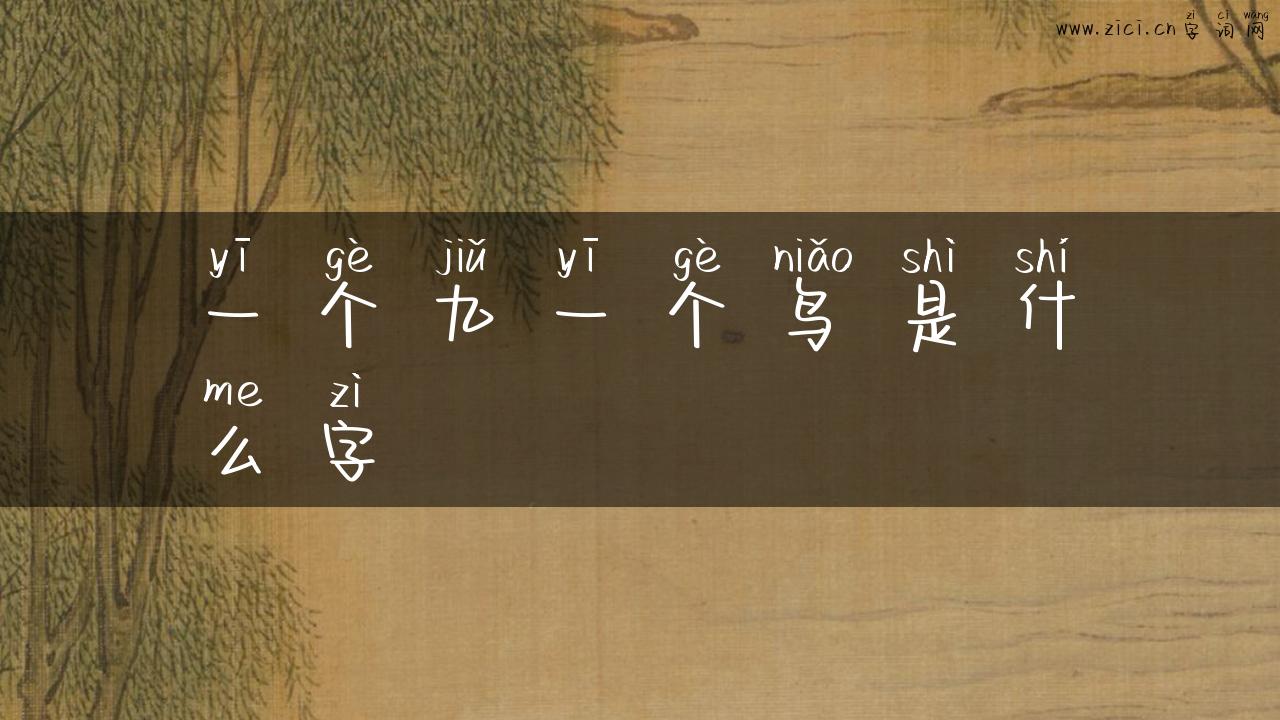 zì cí wǎng
www.zici.cn字词网
yī gè jiǔ yī gè niǎo shì shí
一个九一个鸟是什
me zì
么字